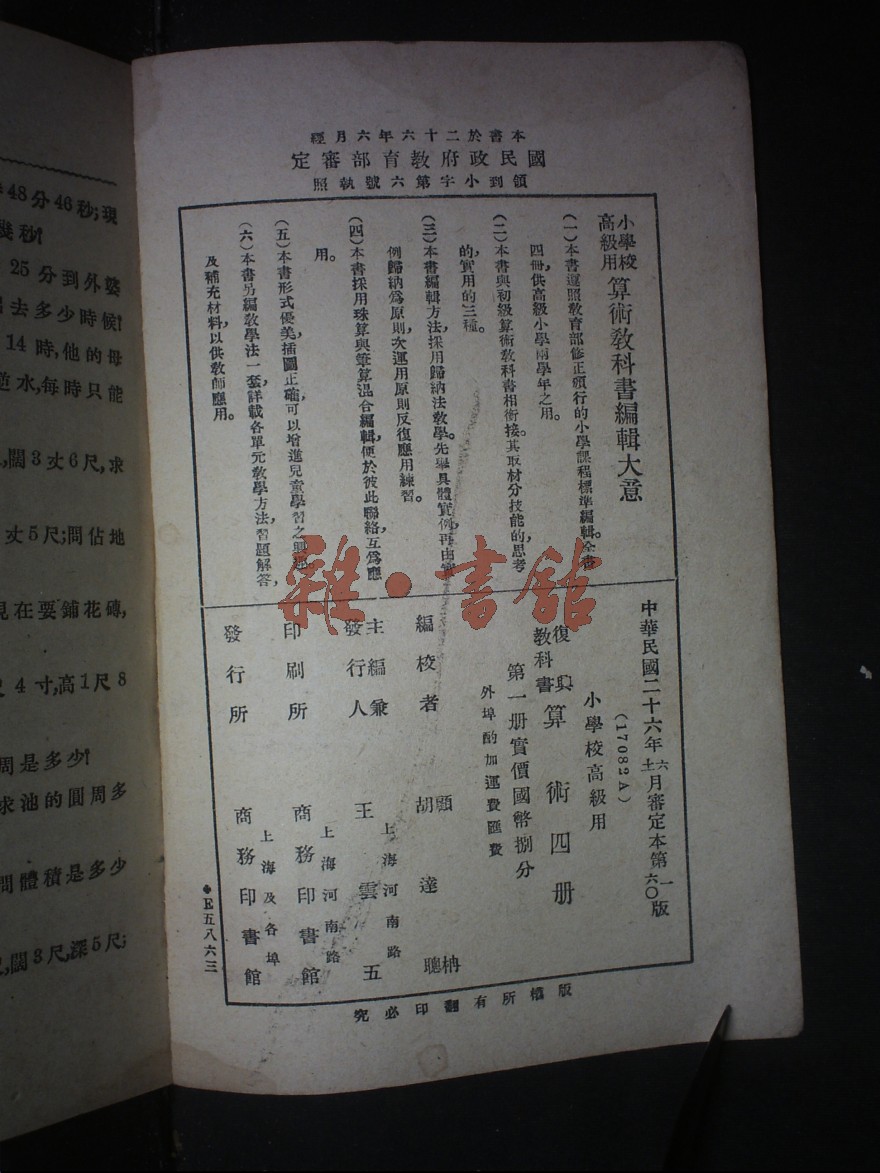 本書於二十六年六月經
國民政府教育部審定
領到小字第六號執照
小學校
高級用
算術教科書編輯大意
(一)本書遵照教育部修正頒行的小學課程標準編輯。全書
四冊，供高級小學兩學年之用。
(二)本書與初級算術教科書相銜接。其取材分技能的思考
的，實用的三種。
(三)本書編輯方法，採用歸納法教學。先舉具體實例，再由實
例歸納爲原則，次運用原則反復應用練習。
(四)本書採用珠算與筆算混合編輯，便於彼此聯絡互爲應
用。
(五)本書形式優美，插圖正確，可以增進兒童學習之興趣。
(六)本書另編教學法一套，詳載各單元教學方法，習題解答，
及補充材料，以供教師應用。
中華民國二十六年
六
十一
月審定本第
一
六〇
版
(17082A)
小學校高級用
復興
教科書
算術四册
第一册實價國幣捌分
外埠酌加運費匯費
編校者
顧柟
胡達聰
主編兼
發行人
王雲五
上海河南路
印刷所
商務印書館
上海河南路
發行所
商務印書館
上海及各埠
版權所有翻印必究
◆E五八六三
48分46秒；現
幾秒？
25分到外婆
去多少時候？
14時，他的母
逆水，每時只能
闊3丈6尺，求
丈5尺；問佔地
現在要鋪花磚，
4寸，高1尺8
周是多少？
求池的圓周多
問體積是多少
闊3尺，深5尺；
雜·書館